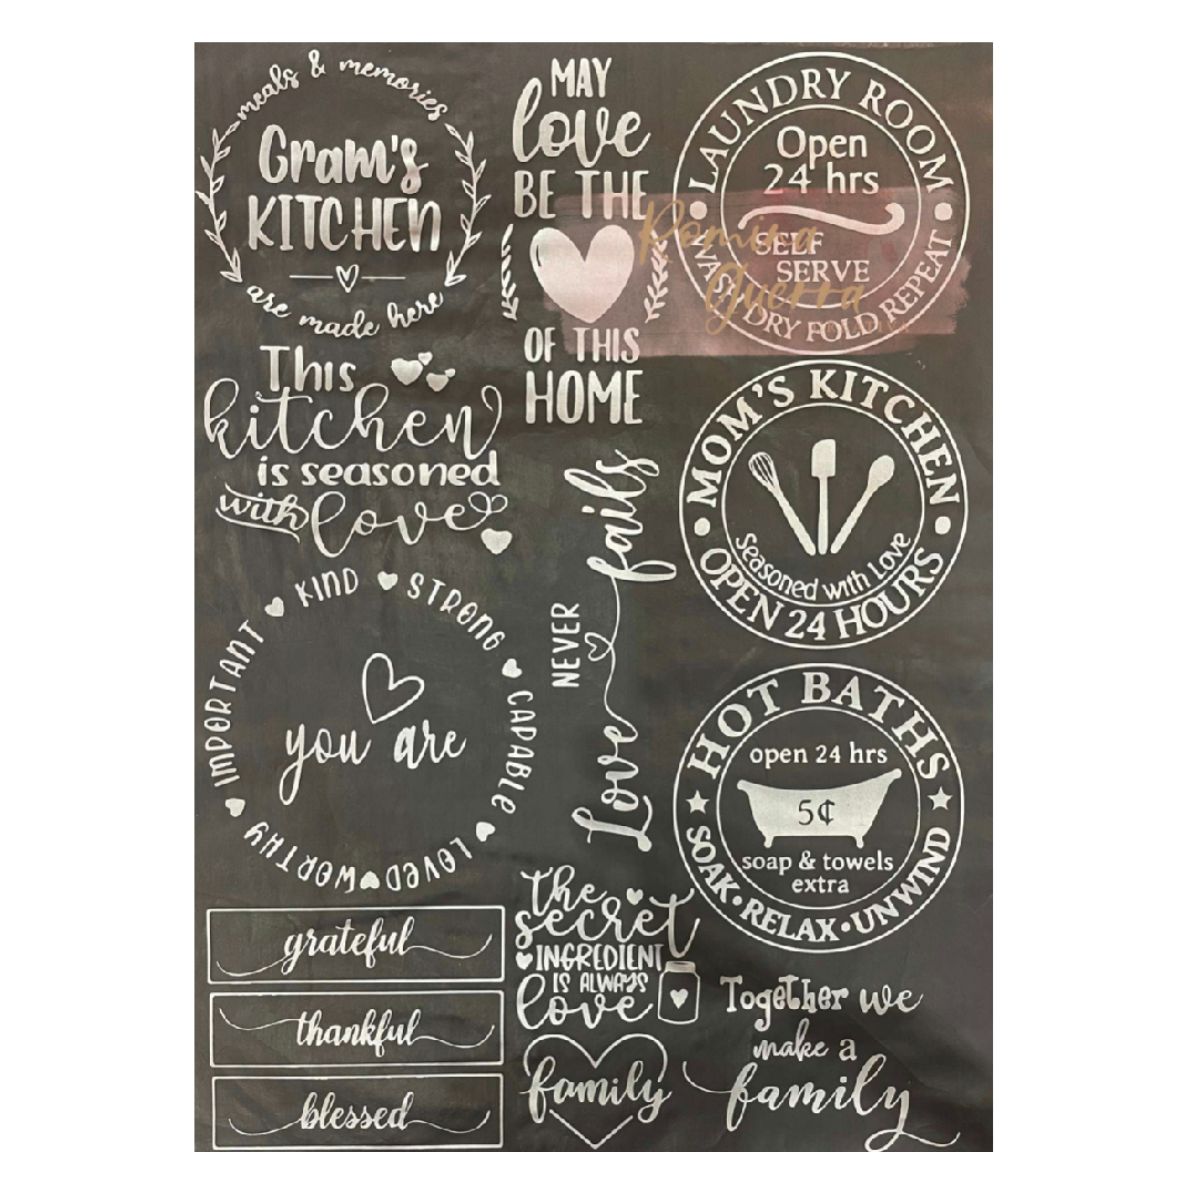 meals & memories
Gram's
KITCHEN
are made here
MAY
love
BE THE
OF THIS
HOME
LAUNDRY ROOM
Open
24 hrs
SELF
SERVE
WASH DRY FOLD REPEAT
Romina
Guerra
This
kitchen
is seasoned
with love
MOM'S KITCHEN
Seasoned with Love
OPEN 24 HOURS
Love NEVER fails
KIND STRONG CAPABLE LOVED WORTHY IMPORTANT
you are
HOT BATHS
open 24 hrs
5¢
soap & towels
extra
SOAK•RELAX•UNWIND
grateful
thankful
blessed
the
secret
INGREDIENT
IS ALWAYS
love
family
Together we
make a
family